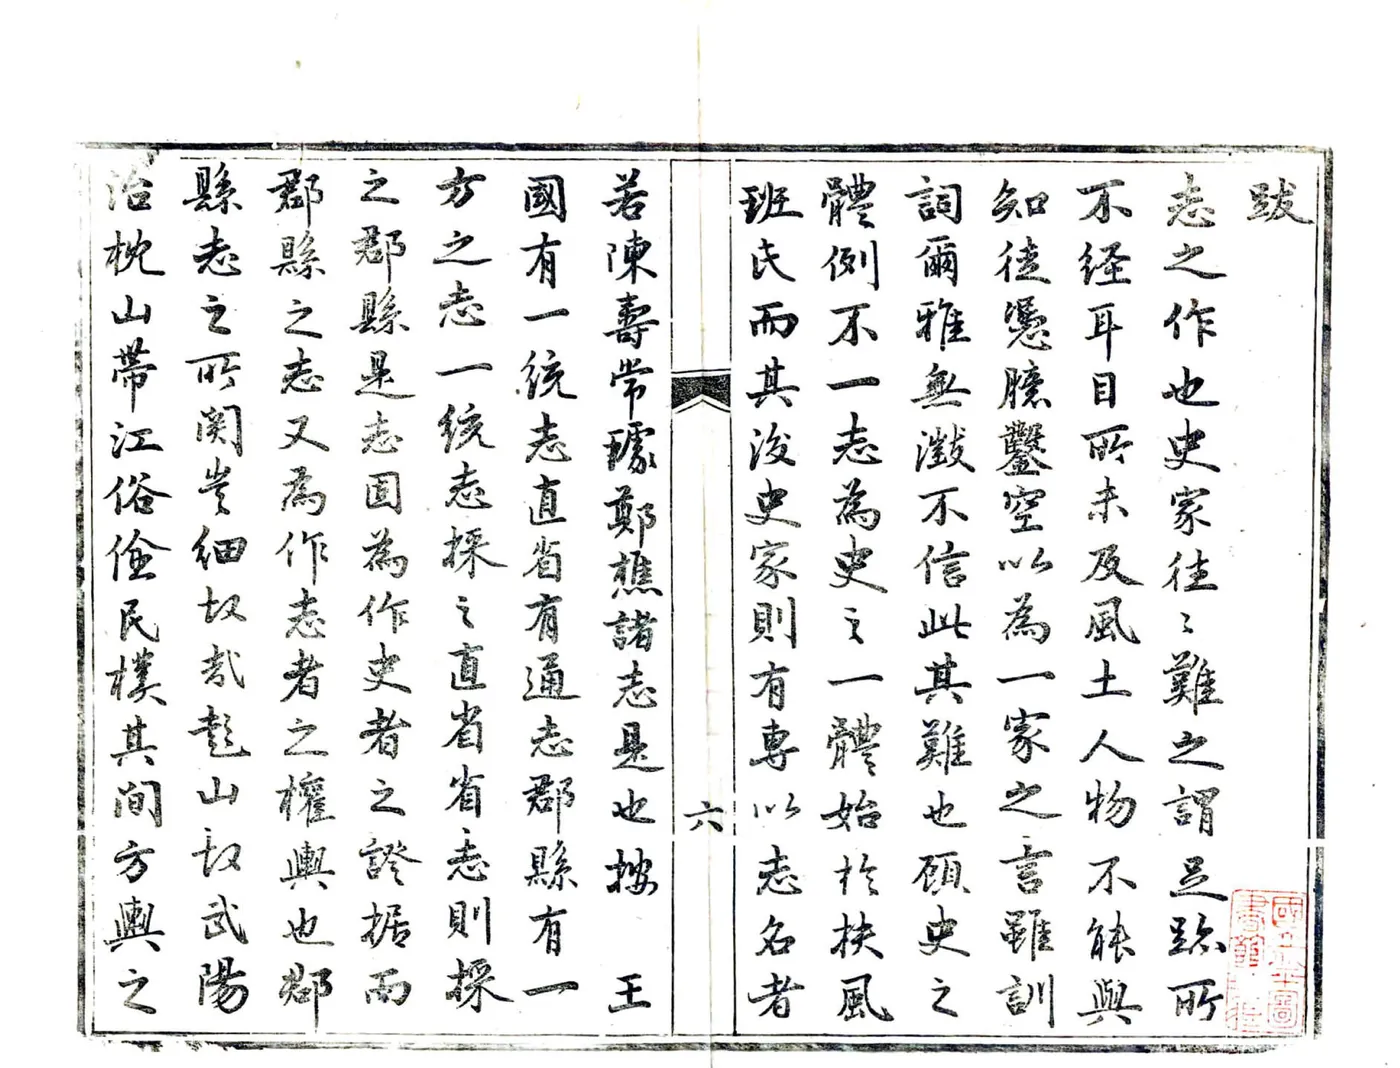 跋
志之作也史家往々難之謂足跡所
不経耳目所未及風土人物不能與
知徒憑臆鑿空以為一家之言雖訓
詞爾雅無徵不信此其難也顧史之
體例不一志為史之一體始於扶風
班氏而其後史家則有專以志名者
若陳壽常璩鄭樵諸志是也按 王
國有一統志直省有通志郡縣有一
方之志一統志採之直省省志則採
之郡縣是志固為作史者之證据而
郡縣之志又為作志者之權輿也郡
縣志之所関豈細故哉彭山故武陽
治枕山帶江俗儉民樸其间方輿之
六